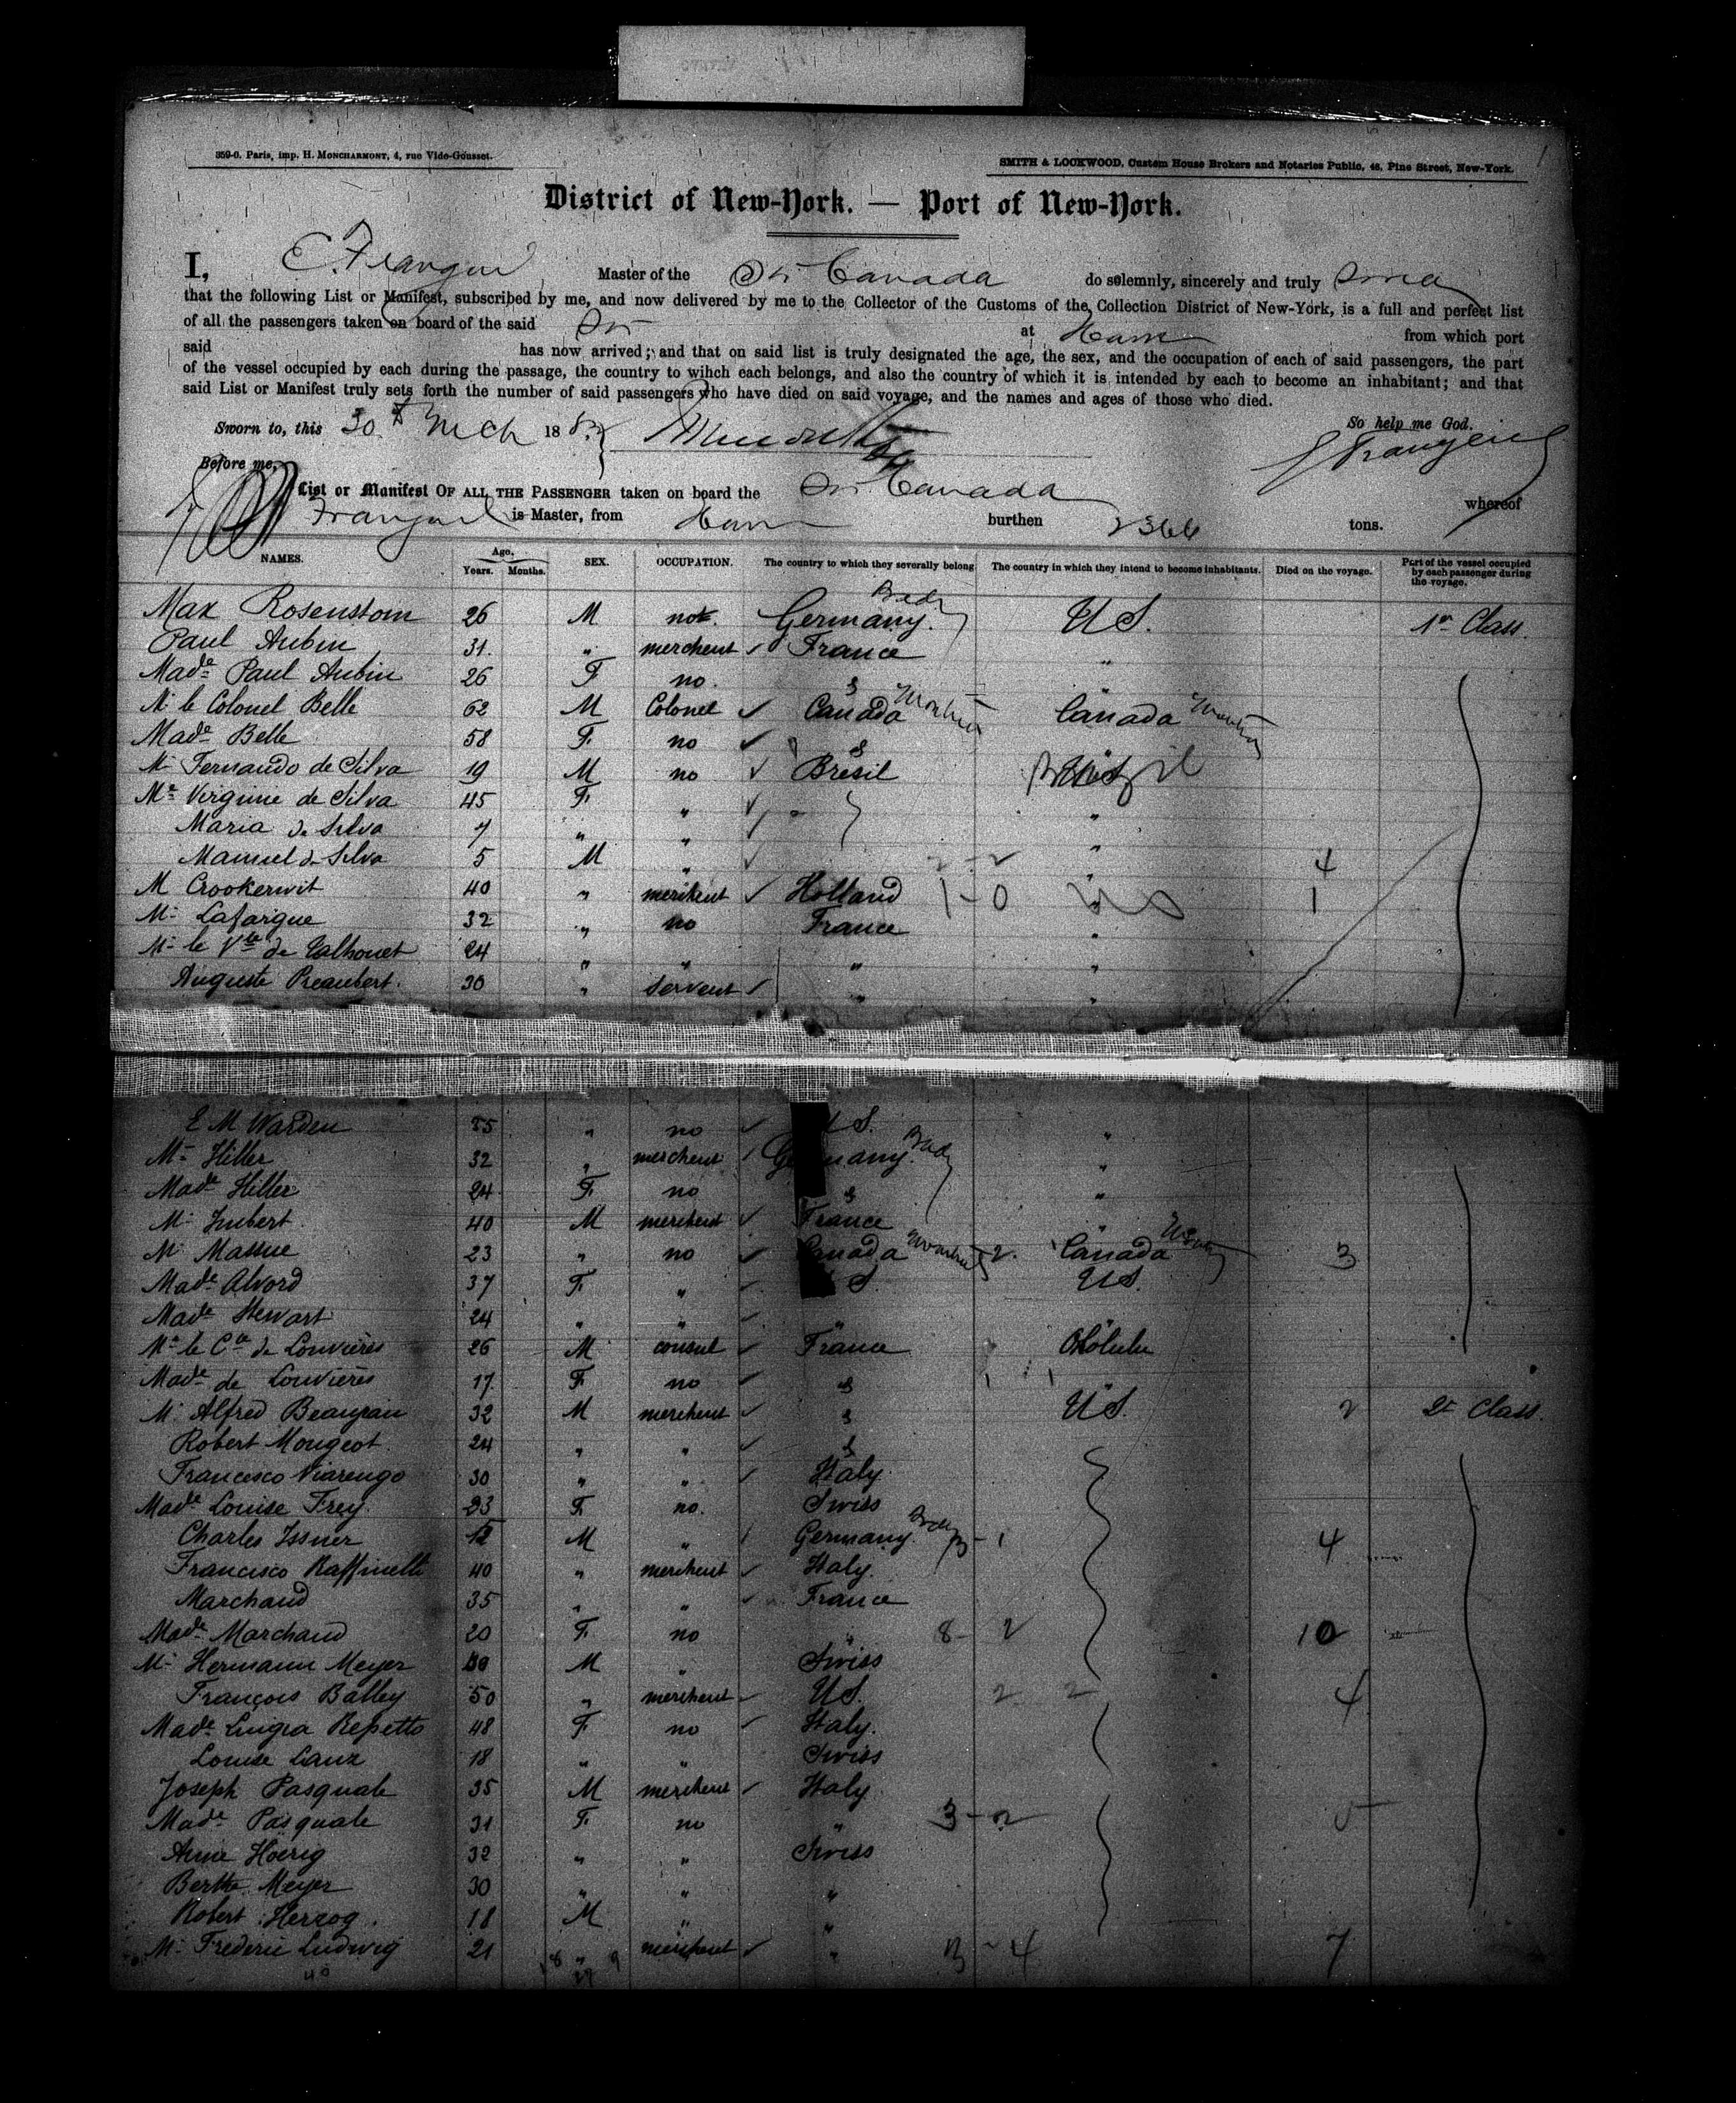 359-6. Paris, imp. H. MONCHARMONT, 4, rue Vide-Gousset.
SMITH & LOCKWOOD, Custom House Brokers and Notaries Public, 46, Pine Street, New-York.
District of New-York. — Port of New-York.
I, Master of the Canada do solemnly, sincerely and truly
that the following List or Manifest, subscribed by me, and now delivered by me to the Collector of the Customs of the Collection District of New-York, is a full and perfect list
of all the passengers taken on board of the said at from which port
said has now arrived; and that on said list is truly designated the age, the sex, and the occupation of each of said passengers, the part
of the vessel occupied by each during the passage, the country to wihch each belongs, and also the country of which it is intended by each to become an inhabitant; and that
said List or Manifest truly sets forth the number of said passengers who have died on said voyage, and the names and ages of those who died.
Sworn to, this 30 Mch 188 So help me God.
Before me,
List or Manifest OF ALL THE PASSENGER taken on board the Canada whereof
is Master, from burthen 2366 tons.
NAMES. Age. Years. Months. SEX. OCCUPATION. The country to which they severally belong The country in which they intend to become inhabitants. Died on the voyage. Part of the vessel occupied by each passenger during the voyage.
Max Rosenstom 26 M not. Germany. US. 1re Class.
Paul Aubin 31. " merchent France "
Made Paul Aubin 26 F no. "
Mr le Colonel Belle 62 M Colonel Canada Canada
Made Belle 58 F no "
Mr Fernando de Silva 19 M no Brésil Brazil
Me Virginie de Silva 45 F " "
Maria de Silva 7 " " "
Manuel de Silva 5 M " 2-2 " 4
M Crookerwit 40 " merchent Holland 1-0 " 1
Mr Lafargue 32 " no France "
Mr le Vte de Talhouet 24 " " " "
Auguste Preaubert. 30 " servent " "
E M Warden " no S. "
Mr Hiller 32 " merchent Germany "
Made Hiller 24 F no "
Mr Imbert. 40 M merchent France "
Mr Massue 23 " no Canada 2. Canada 3
Made Alvord 37 F " S. US.
Made Stewart 24 " " " "
Mr le Cte de Louvières 26 M consul France
Made de Louvières 17 F no
Mr Alfred Beaujean 32 M merchent US. 2 2e Class.
Robert Mougeot 24 " "
Francesco Viarengo 30 " " Italy.
Made Louise Frey. 23 F no. Swiss
Charles Issner 12 M " Germany 3-1 4
Francisco Raffinelli 40 " merchent Italy.
Marchand 35 " " France
Made Marchand 20 F no " 8-2 10
Mr Hermann Meyer M " Swiss
François Balley 50 " merchent US. 2 2 4
Made Luigia Repetto 48 F no Italy.
Louise Lanz 18 " " Swiss
Joseph Pasquale 35 M merchent Italy
Made Pasquale 31 F no " 3-2 5
Anna Höerig 32 " " Swiss
Berthe Meyer 30 " " "
Robert Herzog. 18 M " "
Mr Frederic Ludwig 21 " merchent " 3-4 7